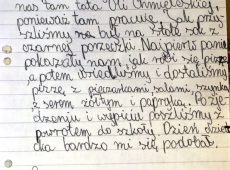 nas tam tata Oli Chmielskiej,
ponieważ tam pracuje. Jak przy-
szliśmy na był na stole sok z
czarnej porzeczki. Najpierw panie
pokazały nam, jak robi się pizzę
a potem usiedliśmy i dostaliśmy
pizzę z pieczarkami, salami, szynką
z serem żółtym i papryką. Po zje-
dzeniu i wypiciu poszliśmy z
powrotem do szkoły. Dzień
dla bardzo mi się podobał.